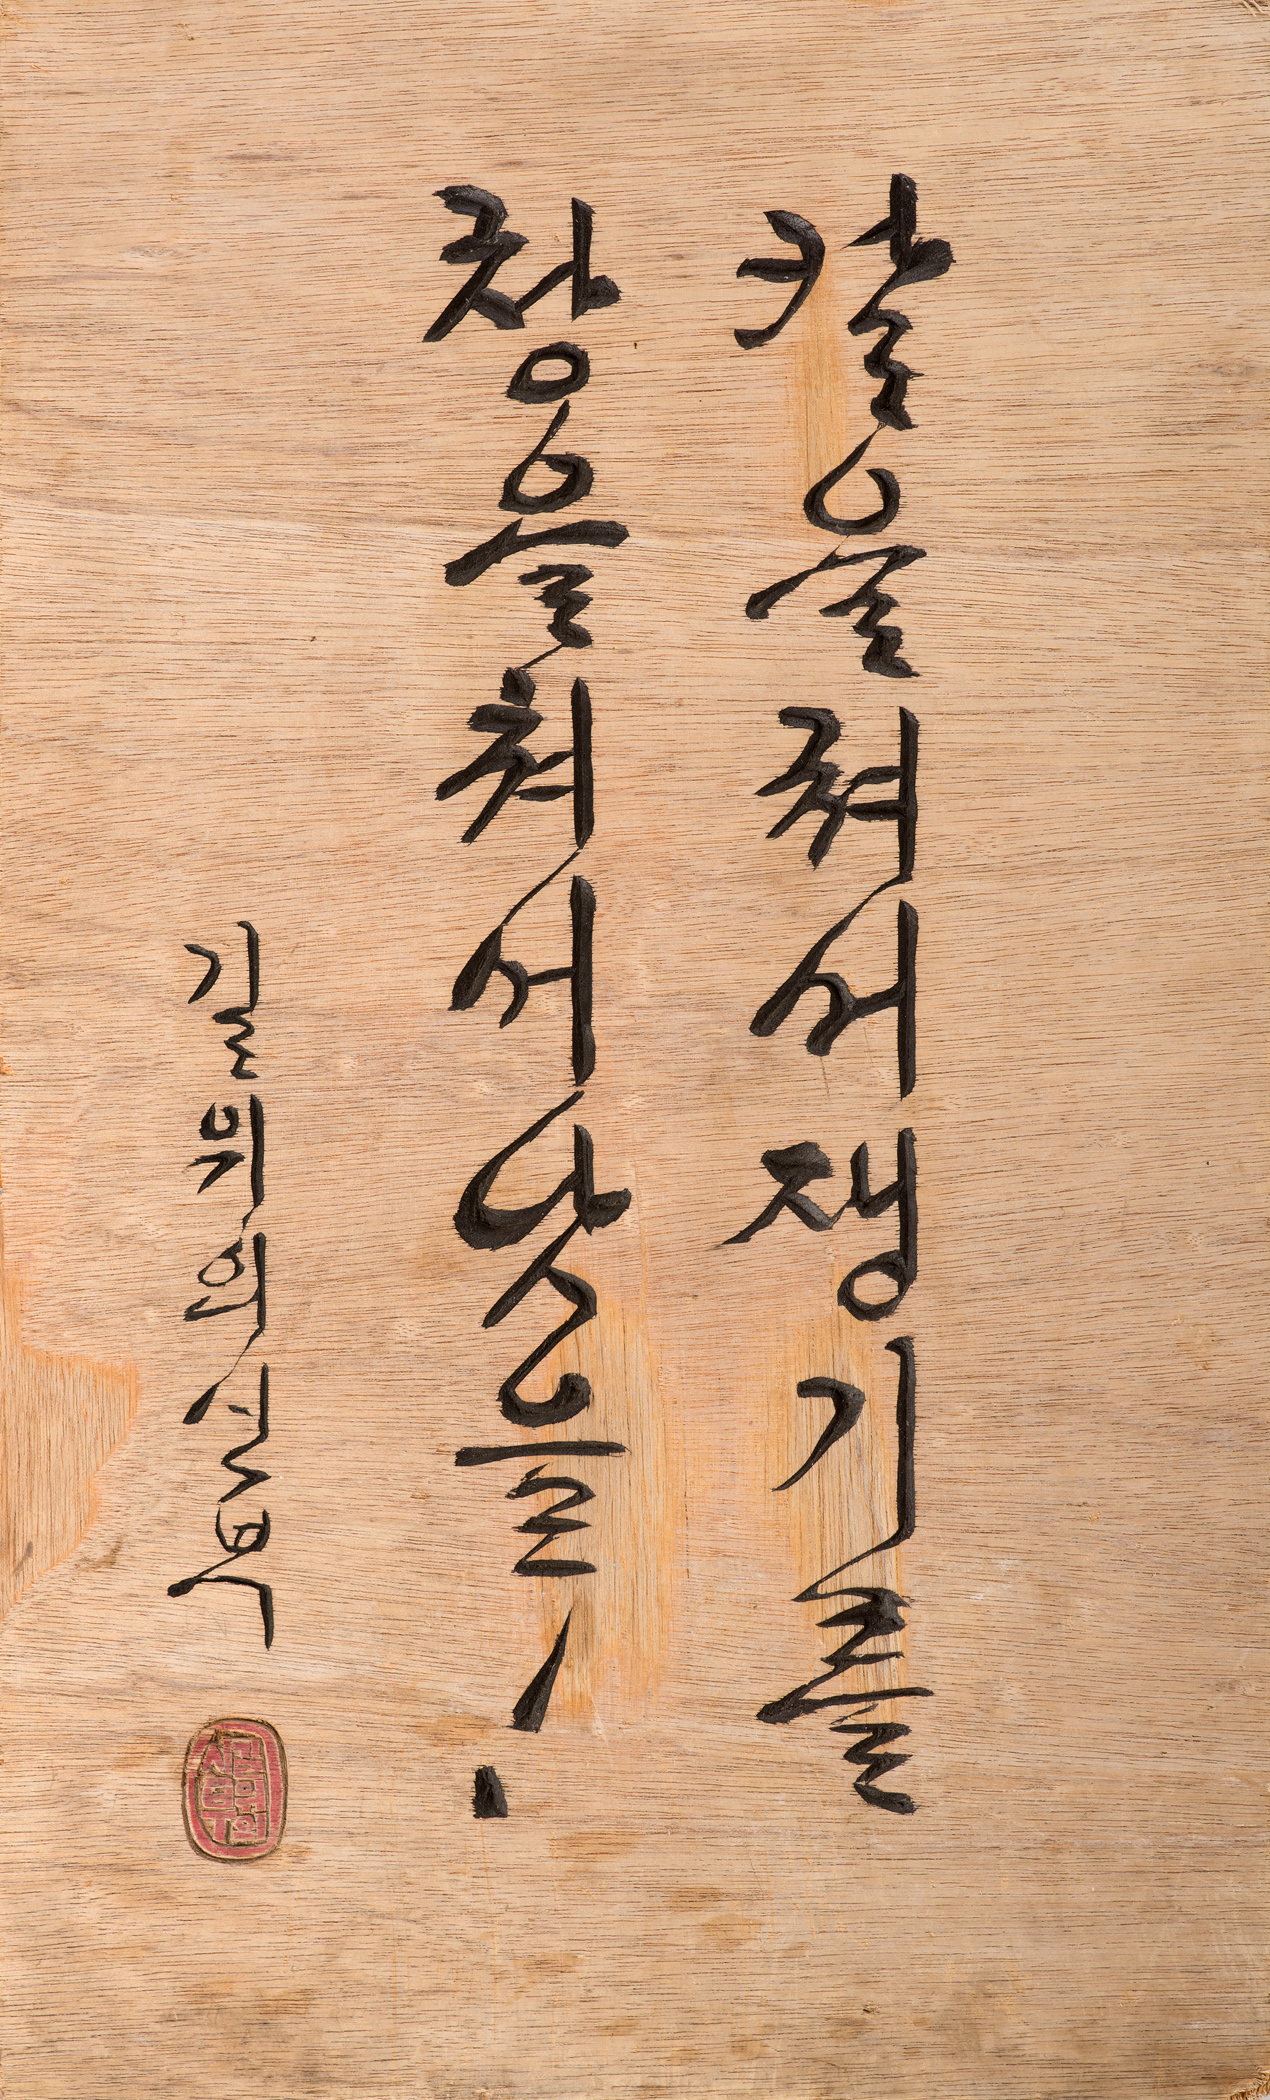 칼을 쳐서 쟁기를
창을 쳐서 낫을!
길 위의 신부